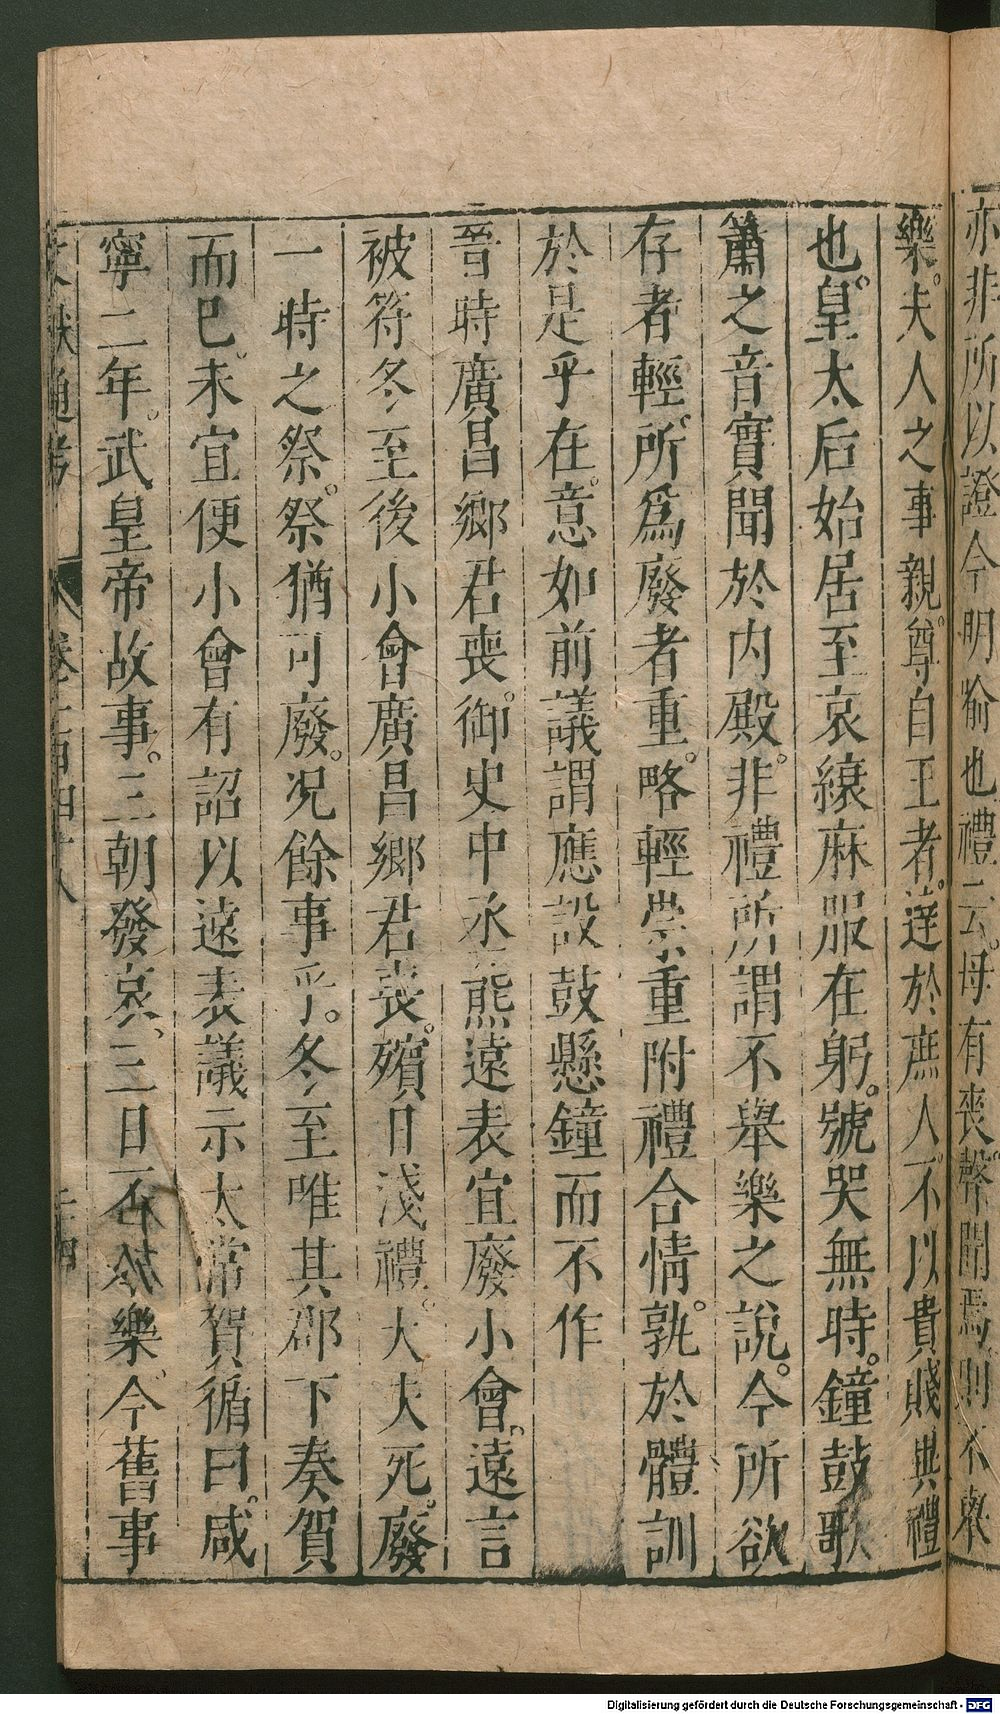 亦非所以證今明喻也禮云母有喪聲聞焉則不舉
樂。夫人之事親。尊自王者。達於庶人。不以貴賤異禮
也。皇太后始居至哀縗麻服在躬。號哭無時。鐘鼓歌
簫之音實聞於内殿。非禮所謂不舉樂之說。今所欲
存者輕。所爲廢者重。略輕崇重附禮合情。孰於體訓
於是乎在。意如前議謂應設鼓懸鐘而不作
晉時廣昌鄉君喪。御史中丞熊遠表宜廢小會。遠言
被符冬至後小會廣昌鄉君喪。殯日淺禮。大夫死。廢
一時之祭。祭猶可廢。况餘事乎。冬至唯其郡下奏賀
而已。未宜便小會有詔以遠表議示太常賀循曰。咸
寧二年。武皇帝故事。三朝發哀、三日不舉樂。今舊事
文獻通考
卷一百四十八
二十四
Digitalisierung gefördert durch die Deutsche Forschungsgemeinschaft - DFG